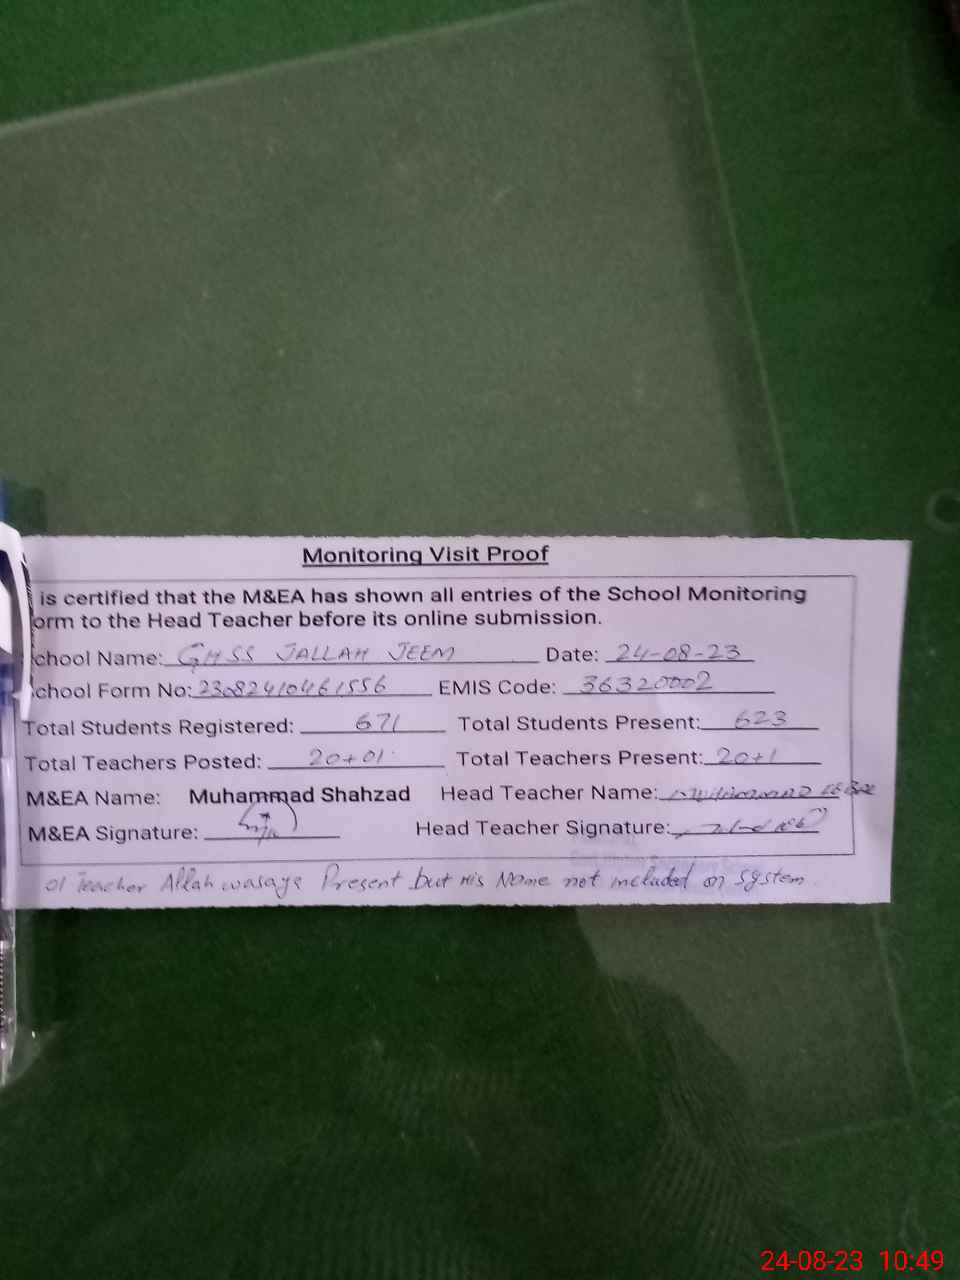 Monitoring Visit Proof
is certified that the M&EA has shown all entries of the School Monitoring
orm to the Head Teacher before its online submission.
chool Name: GHSS JALLAH JEEM Date: 24-08-23
chool Form No: 23082410461556 EMIS Code: 36320002
Total Students Registered: 671 Total Students Present: 623
Total Teachers Posted: 20+01 Total Teachers Present: 20+1
M&EA Name: Muhammad Shahzad Head Teacher Name:
M&EA Signature: Head Teacher Signature:
01 Teacher Allah wasaya Present but His Name not included on system
24-08-23 10:49